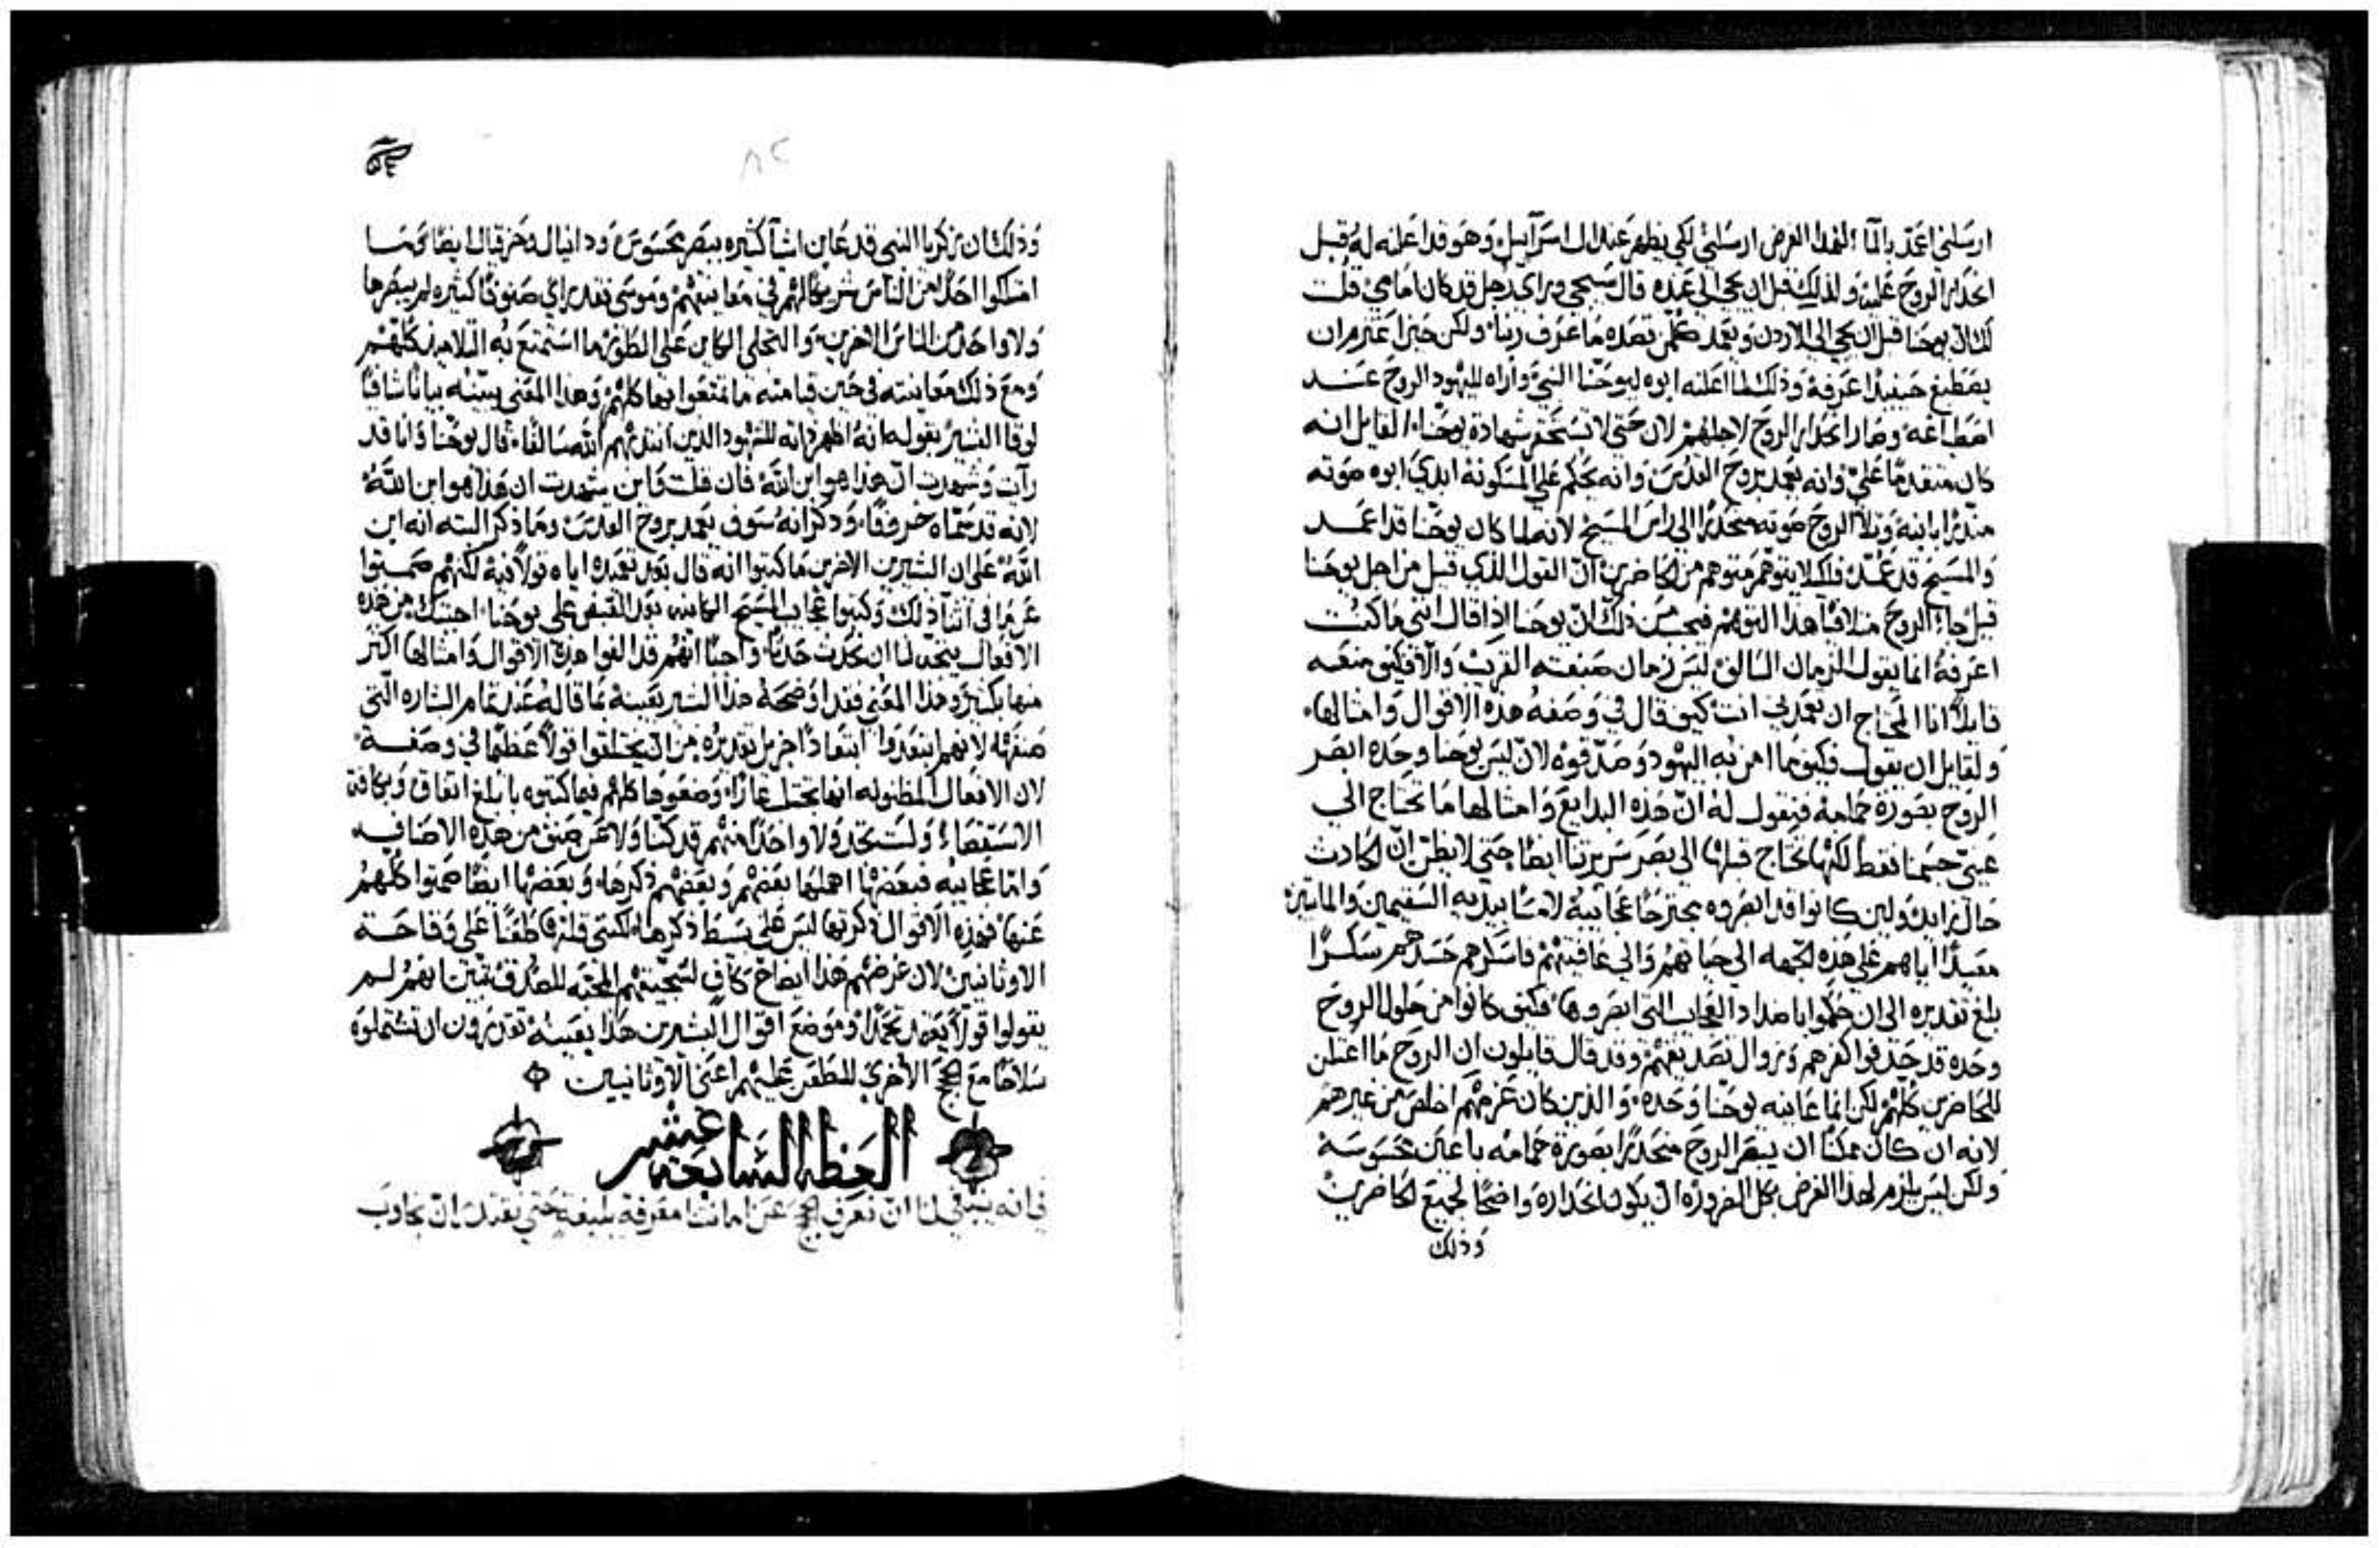 ارسلني اعمد بالماء الهذا الغرض ارسلني لكي يظهر عند ال اسرآييل وهو قد اعلنه له قبل
انحدار الروح عليه ولذلك قبل ان يجي الي عنده قال سيجي وراي رجل قد كان امامي قلت
ان يوحنا قبل ان يجي الي الاردن ويعمد ما عرف ربنا ولكن حين اعتزم ان
يصطبغ حينيذ اعرفه وذلك لما اعلنه ابوه ليوحنا النبي واراه لليهود الروح عند
اصطباغه وصار انحدار الروح لاجلهم لان حتي لا تستحقر شهادة يوحنا القايل انه
كان متقدما علي وانه يعمد بروح القدس وانه يحكم علي المسكونة ابدي ابوه صوته
منذرا بابنه وتلا الروح صوته منحدرا الي راس المسيح لانه لما كان يوحنا قد اعمد
والمسيح قد عمد فلكيلا يتوهم متوهم من الحاضرين ان القول الذي قيل من اجل يوحنا
قيل جاء الروح متلافيا هذا التوهم فيحسن ذلك ان يوحنا اذا قال انني ما كنت
اعرفه انما يقول الزمان السالف ليس زمان صبغته القريب والا فكيف منعه
قايلا انا المحتاج ان تعمدني انت كيف قال في وصفه هذه الاقوال وامثالها
ولقايل ان يقول فكيف ما امن به اليهود وصدقوه لان ليس يوحنا وحده ابصر
الروح بصورة حمامه فنقول له ان هذه البدايع وامثالها ما تحتاج الي
عيني جسمنا فقط لكنها تحتاج قبلها الي بصر سريرتنا ايضا حتي لا يظن ان الحادث
حال زايد ولين كانوا قد ابصروه يجترح عجايبه لامسا بيديه السقيمين والمايتين
معيدا اياهم علي هذه الجهه الي حياتهم والي عافيتهم فاسكرهم حسدهم سكرا
بلغ تقديره الي ان حكموا باضداد العجايب التي ابصروها فكيف كانوا من حلول الروح
وحده قد جذفوا كفرهم وزوال تصديقهم وقد قال قايلون ان الروح ما اعتلن
للحاضرين كلهم لكن انما عاينه يوحنا وحده والذين كان غرضهم اخلص من غيرهم
لانه ان كان ممكنا ان يبصر الروح منحدرا بصورة حمامه باعين محسوسة
ولكن ليس يلزم لهذا الغرض بكل الضروره ان يكون انحداره واضحا لجميع الحاضرين
وذلك
٨٢
وذلك ان زكريا النبي قد عاين اشيآ كثيره ببصر محسوس ودانيال وحزقيال ايضا وما
امتلكوا احدا من الناس شريكا لهم في معاينتهم وموسي فقد راي صنوفا كثيره لم يبصرها
ولا واحد من الناس الاخرين والتجلي الكاين علي الطور ما استمتع به التلاميذ كلهم
ومع ذلك معاينته في حين قيامته ما تمتعوا بها كلهم وهذا المعني يبينه بيانا شافيا
لوقا البشير بقوله انه اظهر ذاته للشهود الذين انتدبهم الله سالفا قال يوحنا وانا قد
رآيت وشهدت ان هذا هو ابن الله فان قلت واين شهدت ان هذا هو ابن الله
لانه قد سماه خروفا وذكر انه سوف يعمد بروح القدس وما ذكر البته انه ابن
الله علي ان البشيرين الاخرين ما كتبوا انه قال بعد تعميده اياه قولا فيه لكنهم صمتوا
عن ما في اثنآ ذلك وكتبوا عجايب المسيح الكاينه بعد القبض علي يوحنا اجبتك من هذه
الافعال يتجه لنا ان نحدث حدثا واجبا انهم قد الفوا هذه الاقوال وامثالها اكثر
منها بكثير وهذا المعني فقد اوضحه هذا البشير بعينه بما قاله عند تمام البشاره التي
صنفها لانهم ابتعدوا ابتعادا جزيلا تقديره من ان يختلقوا قولا عظيما في وصفه
لان الافعال المظنونه انها تحتمل عارا وضعوها كلهم فيما كتبوه بابلغ اتفاق وبكافة
الاستقصاء ولست تجد ولا واحدا منهم قد كنا ولا عن صنف من هذه الاصناف
واما عجايبه فبعضها اهملها بعضهم وبعضهم ذكرها وبعضها ايضا صمتوا كلهم
عنها فهذه الاقوال ذكرتها ليس علي بسط ذكرها لكنني قلتها طعنا علي وقاحة
الاوثانيين لان غرضهم هذا ايضاح كاف لسجيتهم المحبه للصدق يتبين انهم لم
يقولوا قولا يعتمد تحمدا وموضع اقوال البشيرين هذا بعينه تقدرون ان تشتملوه
سلاحا مع الحجج الاخري للطعن عليهم اعني الاوثانيين
العظه السابعه عشر
فانه ينبغي لنا ان نعرف الحجج عن امانتنا معرفة بليغه حتي نقتدر ان نجاوب